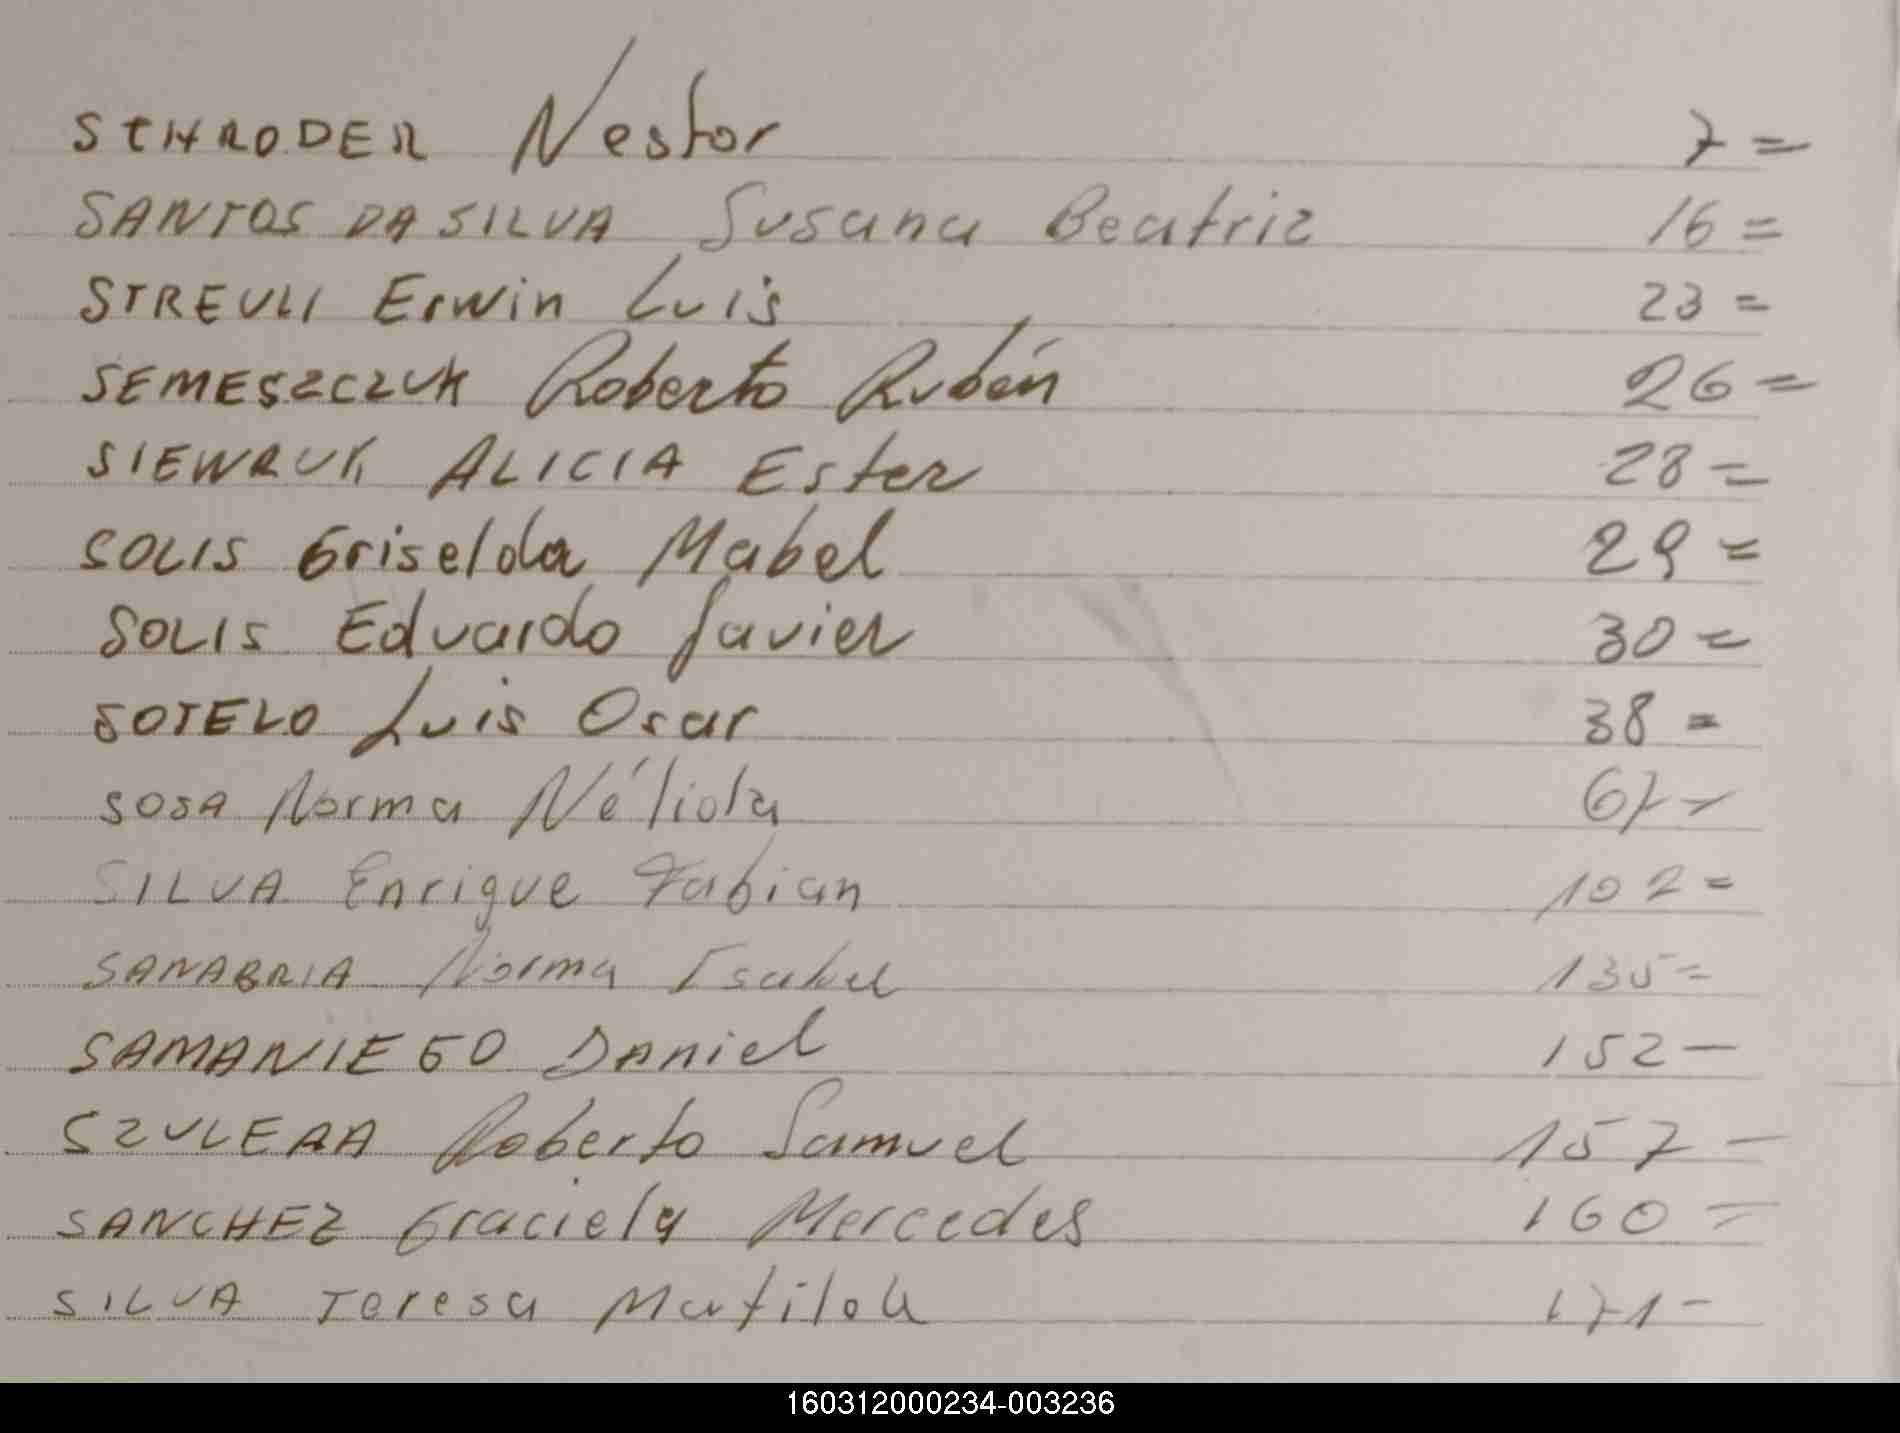 SCHRODER Nestor 7 =
SANTOS DA SILVA Susana Beatriz 16 =
STREULI Erwin Luis 23 =
SEMESZCZUK Roberto Rubén 26 =
SIEWRUK ALICIA Ester 28 =
SOLIS Griselda Mabel 29 =
SOLIS Eduardo Javier 30 =
SOTELO Luis Oscar 38 =
SOSA Norma Nélida 67 -
SILVA Enrique Fabian 102 =
SANABRIA Norma Isabel 135 =
SAMANIEGO Daniel 152 -
Roberto Samuel 157 -
SANCHEZ Graciela Mercedes 160 =
SILVA Teresa Matilda 171 -
160312000234-003236